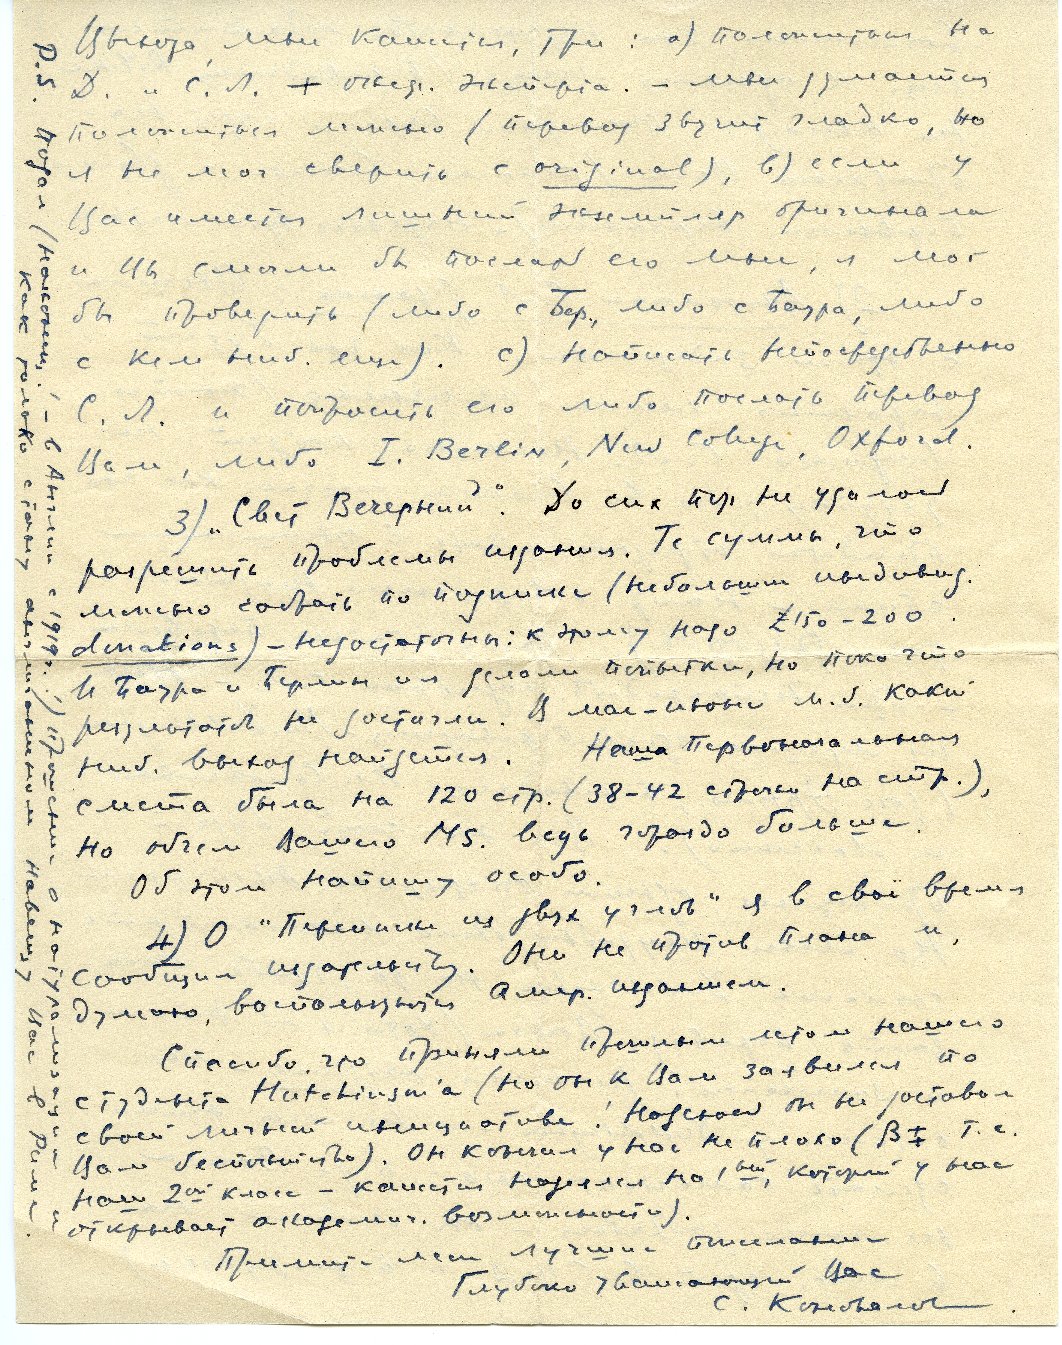 Выхода, мне кажется, три: а) положиться на
Д. и С. Л. + оксф. эксперта. – мне думается
положиться можно (перевод звучит гладко, но
я не мог сверить с original), в) если у
Вас имеется лишний экземпляр оригинала
и Вы смогли бы послать его мне, я мог
бы проверить (либо с Бер., либо с Баура, либо
с кем ниб. еще). с) написать непосредственно
С. Л. и попросить его либо послать перевод
Вам, либо I. Berlin, New College, Oxford.
3) „Свет Вечерний". До сих пор не удалось
разрешить проблемы издания. Те суммы, что
можно собрать по подписке (небольшие индивид.
donations) – недостаточны: к этому надо £150-200.
И Баура и Берлин делали попытки, но пока что
результатов не достигли. В мае-июне м. б. какой
ниб. выход найдется. Наша первоначальная
смета была на 120 стр. (38-42 строчки на стр.),
но объем Вашего MS. ведь гораздо больше.
Об этом напишу особо.
4) О "Переписке из двух углов" я в своё время
сообщил издательству. Они не против плана и,
думаю, воспользуются Амер. изданием.
Спасибо, что приняли прошлым летом нашего
студента Hutchinson'a (но он к Вам заявился по
своей личной инициативе! Надеюсь он не доставил
Вам беспокойства). Он кончил у нас не плохо (β I т.е.
наш 2ой класс – кажется надеялся на 1ый, который у нас
открывает академич. возможности).
Примите мои лучшие пожелания
Глубоко уважающий Вас
С. Коновалов.
P.S. Подал (наконец! – в Англии с 1919 г.!) прошение о натурализации и
как только стану англичанином навещу Вас в Риме.